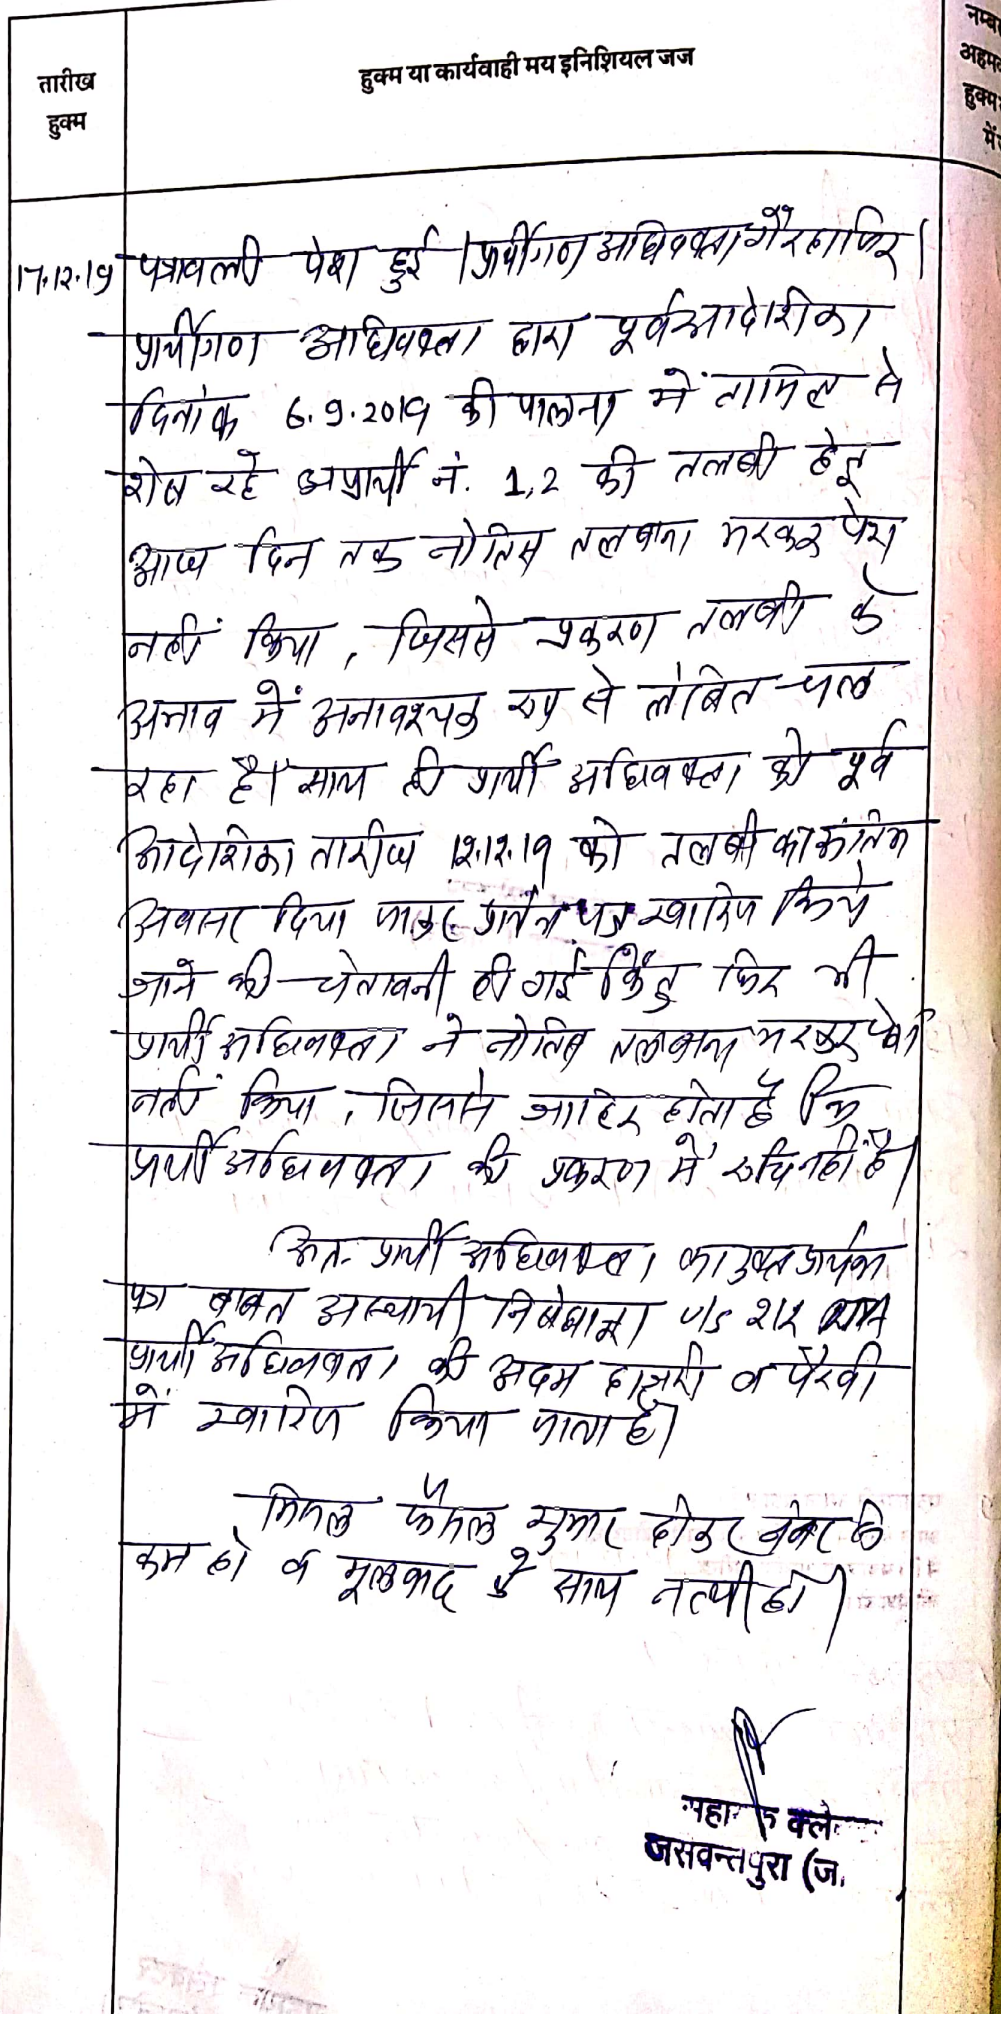 तारीख
हुक्म
हुक्म या कार्यवाही मय इनिशियल जज
नम्बर
अहम
हुक्म
में
17.12.19 पत्रावली पेश हुई। प्रार्थीगण अधिवक्ता गैरहाजिर।
प्रार्थीगण अधिवक्ता द्वारा पूर्व आदेशिका
दिनांक 6.9.2019 की पालना में तामिल से
शेष रहे अप्रार्थी नं. 1,2 की तलबी हेतु
आज दिन तक नोटिस तलबाना भरकर पेश
नहीं किया, जिससे प्रकरण तलबी के
अभाव में अनावश्यक रूप से लंबित चल
रहा है। साथ ही प्रार्थी अधिवक्ता को पूर्व
आदेशिका तारीख 12.12.19 को तलबी का अंतिम
अवसर दिया जाकर प्रार्थना पत्र खारिज किये
जाने की चेतावनी दी गई किंतु फिर भी
प्रार्थी अधिवक्ता ने नोटिस तलबाना भरकर पेश
नहीं किया, जिससे जाहिर होता है कि
प्रार्थी अधिवक्ता की प्रकरण में रूचि नहीं है।
अतः प्रार्थी अधिवक्ता का उक्त प्रार्थना
पत्र बाबत अस्थायी निषेधाज्ञा U/S 212
प्रार्थी अधिवक्ता की अदम हाजरी व पैरवी
में खारिज किया जाता है।
मिसल फैसल शुमार होकर नंबर से
कम हो व मूलवाद के साथ नत्थी हो।
जसवन्तपुरा (ज.